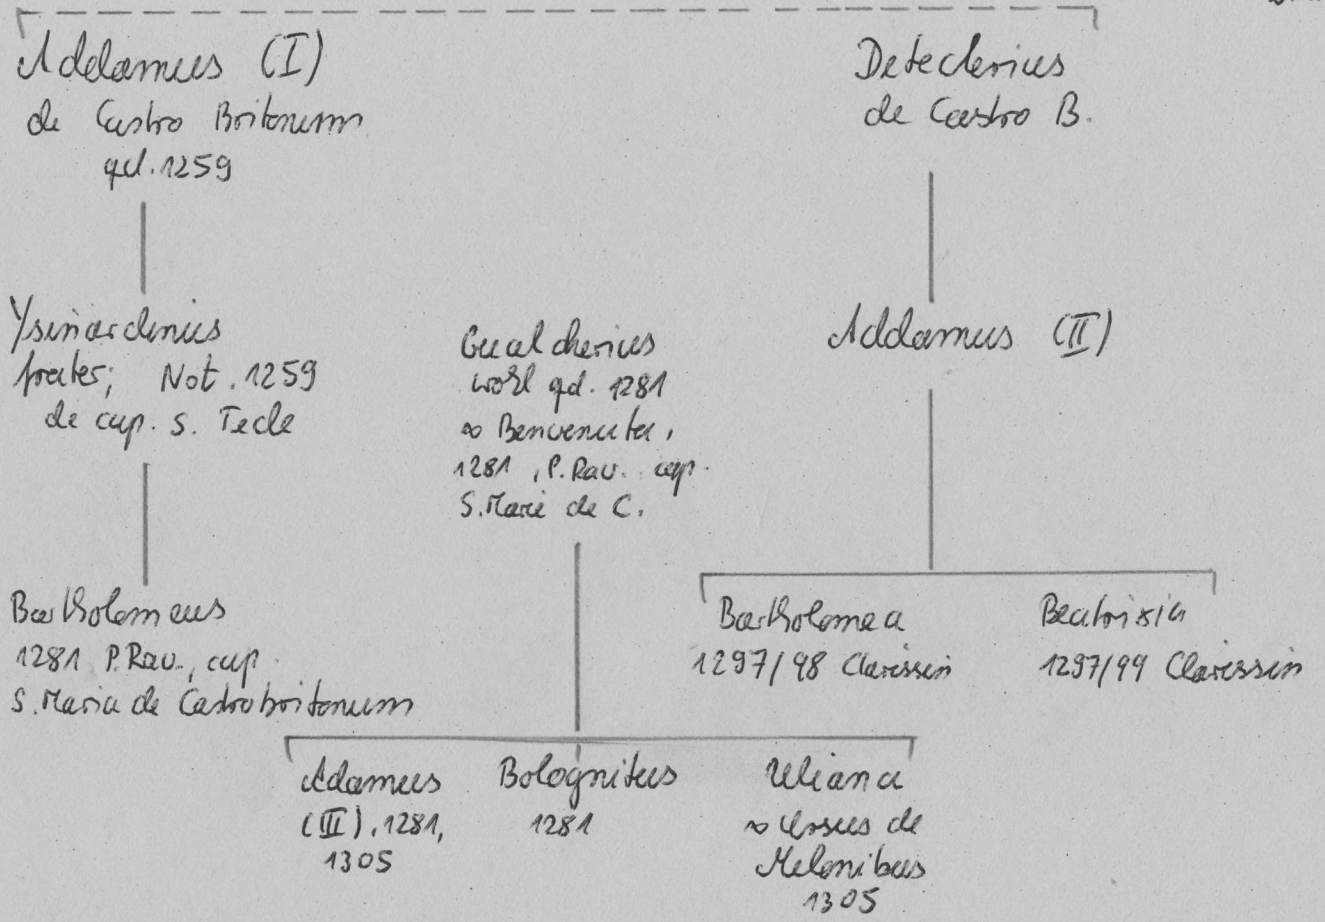 Addamus (I)
de Castro Britonum
qd. 1259
Deteclerius
de Castro B.
Ysinardinus
frater; Not. 1259
de cap. S. Tecle
Gualcherius
wohl qd. 1281
∞ Benvenuta,
1281, P. Rav. cap.
S. Marie de C.
Addamus (II)
Bartholomeus
1281 P. Rav., cap.
S. Maria de Castrobritonum
Bartholomea
1297/98 Clarissin
Beatrixia
1297/99 Clarissin
Adamus
(III), 1281,
1305
Bolognitus
1281
Uliana
∞ Ursus de
Melonibus
1305